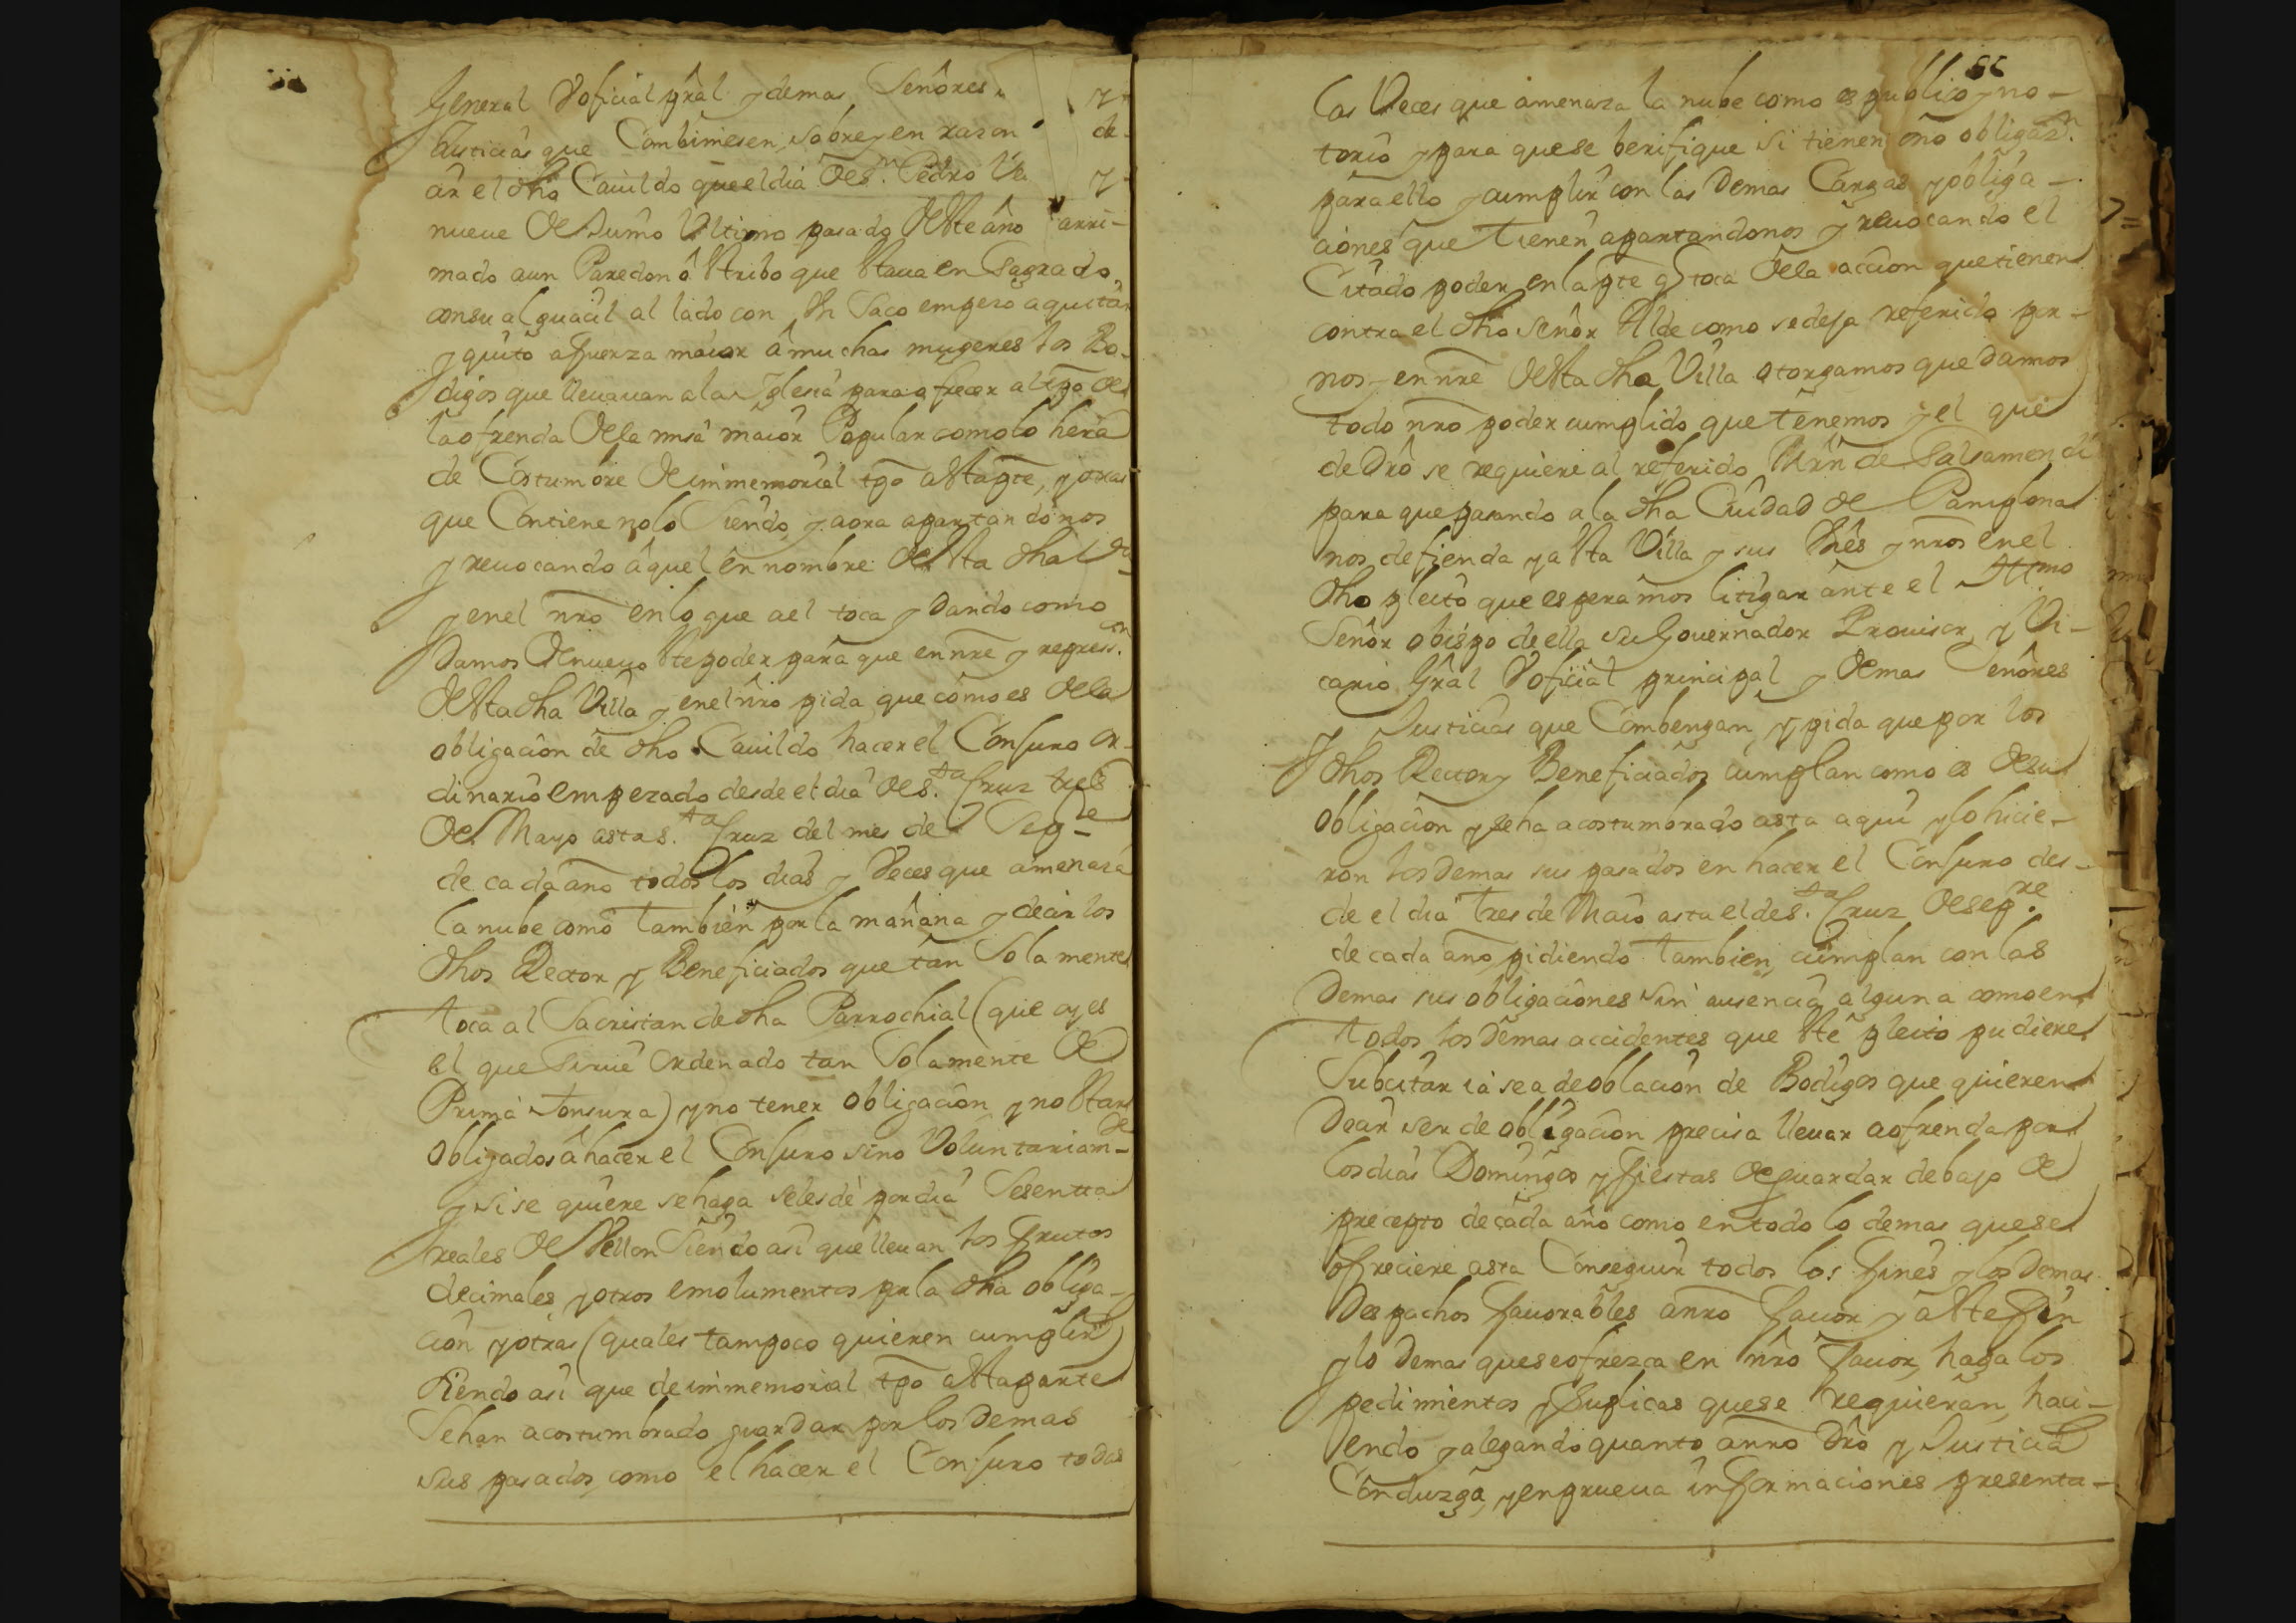 General V oficial gral y demas Señores y
Justicias que Combiniesen, sobre y en razon de
ar el dho Cauildo que el dia de sn Pedro Ve y
nueve de Junio Vltimo pasado deste año arri-
mado aun Paredon ô Stribo que Staua en Sagrado
con su alguacil al lado con Vn Saco empezo a quitar
y quito a fuerza maior â muchas mugeres los Bo-
digos que lleuauan a la Iglesia para ofrecer al tpo de
la ofrenda de la misa maior Popular como lo hera
de Costumbre de immemorial tpo a Sta pte, y otras
que Contiene no lo Siendo, y aora apartandonos
y reuocando âquel en nombre de Sta dha Va
y en el nro en lo que a el toca y Dando como
Damos de nueuo Ste poder para que en nre y repressn
de Sta dha Villa y en el nro pida que como es de la
obligacion de dho Cauildo hacer el Conjuro or-
dinario empezado desde el dia de S.ta Cruz tres
de Mayo asta S.ta Cruz del mes de Sepre
de cada año todos los dias y Veces que amenaza
la nube como tambien por la mañana y decir los
dhos Rector y Beneficiados que tan Sola mente
toca al Sacristan de dha Parrochial (que oy es
el que Sirue Ordenado tan Solamente de
Prima tonsura) y no tener obligacion y no Star
obligados â hacer el Conjuro sino Voluntariamte
y si se quiere se haga se les dè por dia Sesentta
reales de Vellon Siendo asi que lleuan los frutos
decimales y otros emolumentos por la dha obliga-
cion y otras (quales tampoco quieren cumplir)
Siendo asi que de immemorial tpo a Sta parte
Se han acostumbrado guardar por los demas
sus pasados, como el hacer el Conjuro todas
las Veces que amenaza la nube como es publico y no-
torio y para que se berifique si tienen ô no obligazn
para ello y cumplir con las Demas Cargas y obliga-
ciones que tienen apartandonos y reuocando el
Citado poder en la pte q toca de la accion que tienen
contra el dho Señor Alde como se deja referido por
nos y en nre de Sta dha Villa otorgamos que damos
todo nro poder cumplido que tenemos y el que
de Dro se requiere al referido Mrn de Salsamendi
para que pasando a la dha Ciudad de Pamplona
nos defienda y a Sta Villa y sus y nros en el
dho pleito que esperamos litigar ante el Illmo
Señor obispo de ella su Gouernador Prouisor y Vi-
cario Gral V oficial principal y demas Señores
Justicias que Combengan, y pida que por los
dhos Rector y Beneficiados cumplan como es de su
obligacion y se ha acostumbrado asta aqui y lo hicie-
ron los Demas sus pasados en hacer el Conjuro des-
de el dia tres de Maio asta el de S.ta Cruz de sepre
de cada año, pidiendo tambien cumplan con las
Demas sus obligaciones sin ausencia alguna como en
todos los Demas accidentes que Ste pleito pudiere
Subcitar ia sea de oblacion de Bodigos que quieren
Decir ser de obligacion precisa lleuar a ofrenda por
los dias Domingos y fiestas de guardar debajo de
precepto de cada año como en todo lo demas que se
ofreciere asta Conseguir todos los fines y los Demas
Despachos fauorables a nro fauor y a Ste fin
y lo Demas que se ofrezca en nro fauor, haga los
pedimientos y suplicas que se requieran haci-
endo y alegando quanto a nro Dro y Justicia
Conduzga, y en prueua informaciones presenta-